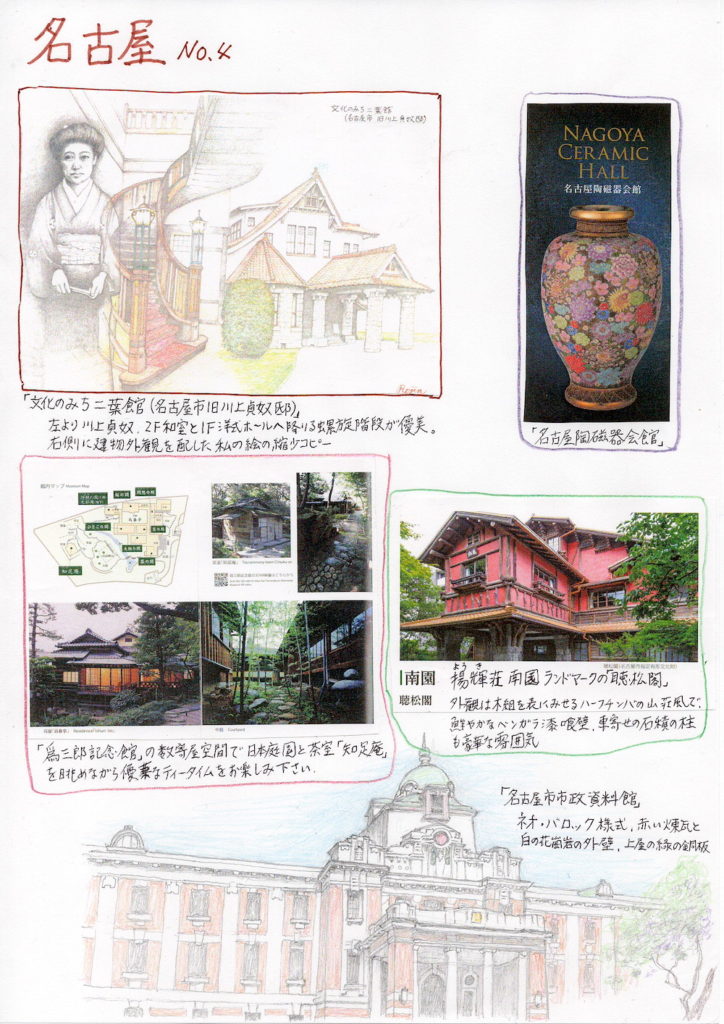 名古屋 No.4
文化のみち二葉館
(名古屋市 旧川上貞奴邸)
NAGOYA
CERAMIC
HALL
名古屋陶磁器会館
「文化のみち二葉館(名古屋市旧川上貞奴邸)」
左より川上貞奴、2F和室と1F洋式ホールへ降りる螺旋階段が優美。
右側に建物外観を配した私の絵の縮少コピー
「名古屋陶磁器会館」
館内マップ Museum Map
中庭 Courtyard
「爲三郎記念館」の数寄屋空間で日本庭園と茶室「知足庵」
を眺めながら優雅なティータイムをお楽しみ下さい.
聴松閣(名古屋市指定有形文化財)
南園
聴松閣
ようき
「揚輝荘 南園 ランドマークの「聴松閣」
外観は木組を表にみせるハーフチンバの山荘風で、
鮮やかなベンガラ漆喰壁、車寄せの石積の柱
も豪華な雰囲気
「名古屋市市政資料館」
ネオ・バロック様式、赤い煉瓦と
白の花崗岩の外壁、上屋の緑の銅板